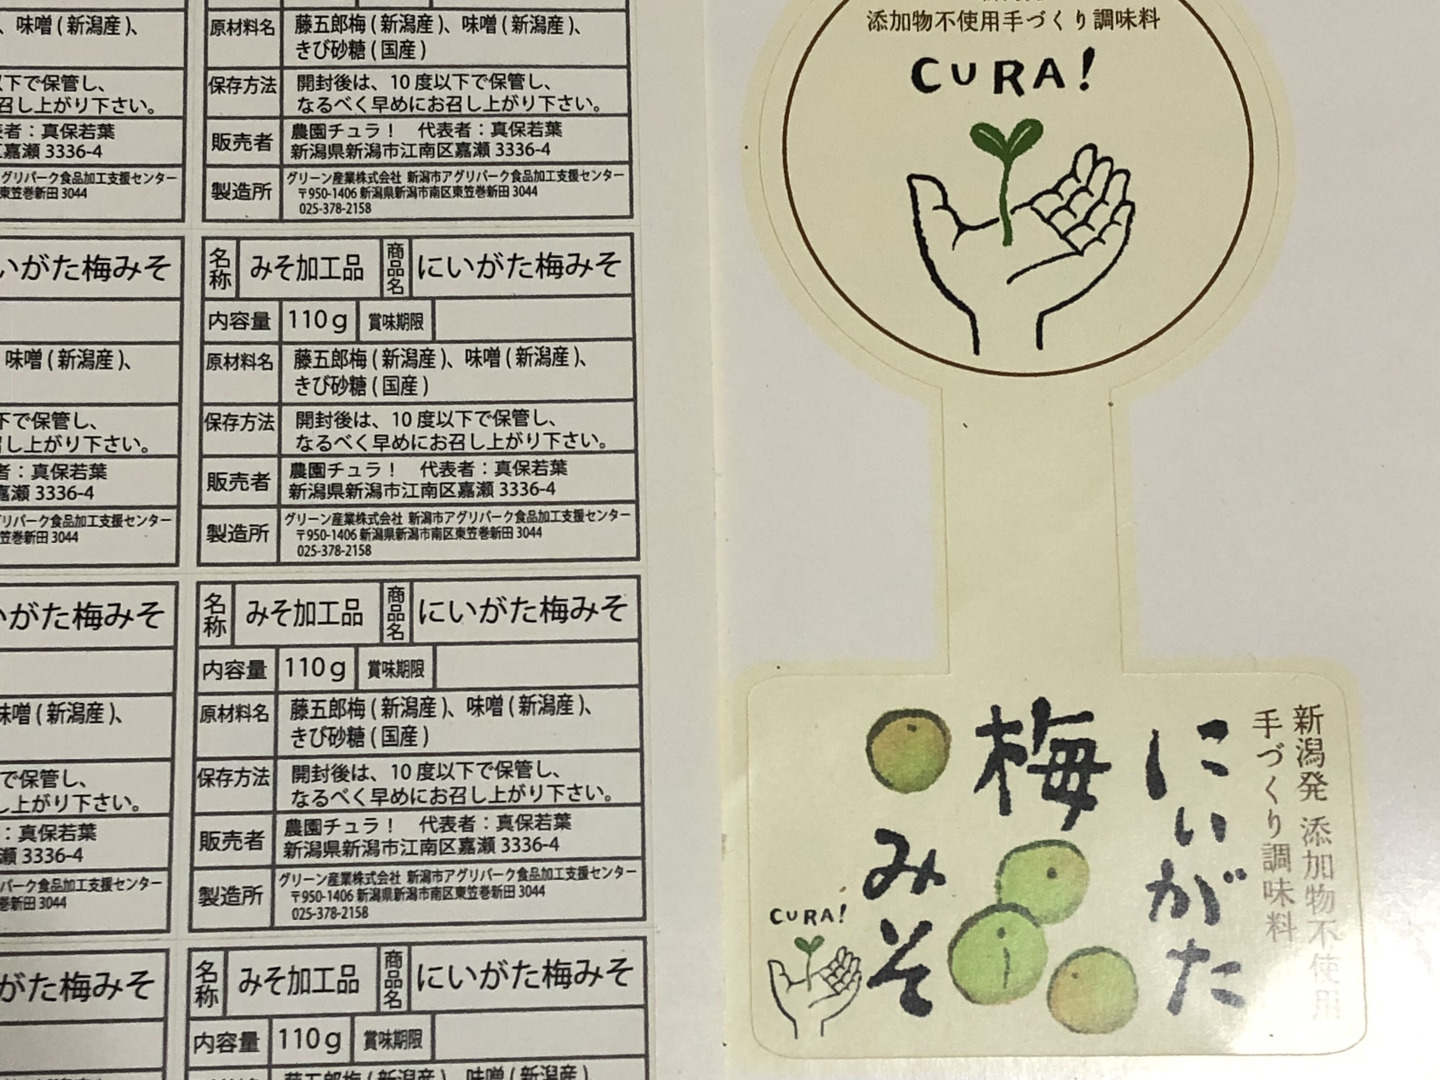 、味噌(新潟産)、
以下で保管し、
召し上がり下さい。
者：真保若葉
嘉瀬 3336-4
グリパーク食品加工支援センター
東笠巻新田 3044
いがた梅みそ
味噌(新潟産)、
下で保管し、
召し上がり下さい。
者：真保若葉
嘉瀬 3336-4
グリパーク食品加工支援センター
笠巻新田 3044
いがた梅みそ
味噌(新潟産)、
で保管し、
し上がり下さい。
：真保若葉
瀬 3336-4
パーク食品加工支援センター
巻新田 3044
がた梅みそ
原材料名 藤五郎梅(新潟産)、味噌(新潟産)、
きび砂糖(国産)
保存方法 開封後は、10度以下で保管し、
なるべく早めにお召し上がり下さい。
販売者 農園チュラ！ 代表者：真保若葉
新潟県新潟市江南区嘉瀬 3336-4
製造所 グリーン産業株式会社 新潟市アグリパーク食品加工支援センター
〒950-1406 新潟県新潟市南区東笠巻新田 3044
025-378-2158
名称 みそ加工品 商品名 にいがた梅みそ
内容量 110g 賞味期限
原材料名 藤五郎梅(新潟産)、味噌(新潟産)、
きび砂糖(国産)
保存方法 開封後は、10度以下で保管し、
なるべく早めにお召し上がり下さい。
販売者 農園チュラ！ 代表者：真保若葉
新潟県新潟市江南区嘉瀬 3336-4
製造所 グリーン産業株式会社 新潟市アグリパーク食品加工支援センター
〒950-1406 新潟県新潟市南区東笠巻新田 3044
025-378-2158
名称 みそ加工品 商品名 にいがた梅みそ
内容量 110g 賞味期限
原材料名 藤五郎梅(新潟産)、味噌(新潟産)、
きび砂糖(国産)
保存方法 開封後は、10度以下で保管し、
なるべく早めにお召し上がり下さい。
販売者 農園チュラ！ 代表者：真保若葉
新潟県新潟市江南区嘉瀬 3336-4
製造所 グリーン産業株式会社 新潟市アグリパーク食品加工支援センター
〒950-1406 新潟県新潟市南区東笠巻新田 3044
025-378-2158
名称 みそ加工品 商品名 にいがた梅みそ
内容量 110g 賞味期限
藤五郎梅(新潟産)、味噌(新潟産)、
添加物不使用手づくり調味料
CURA!
新潟発 添加物不使用
手づくり調味料
にいがた
梅
みそ
CURA!